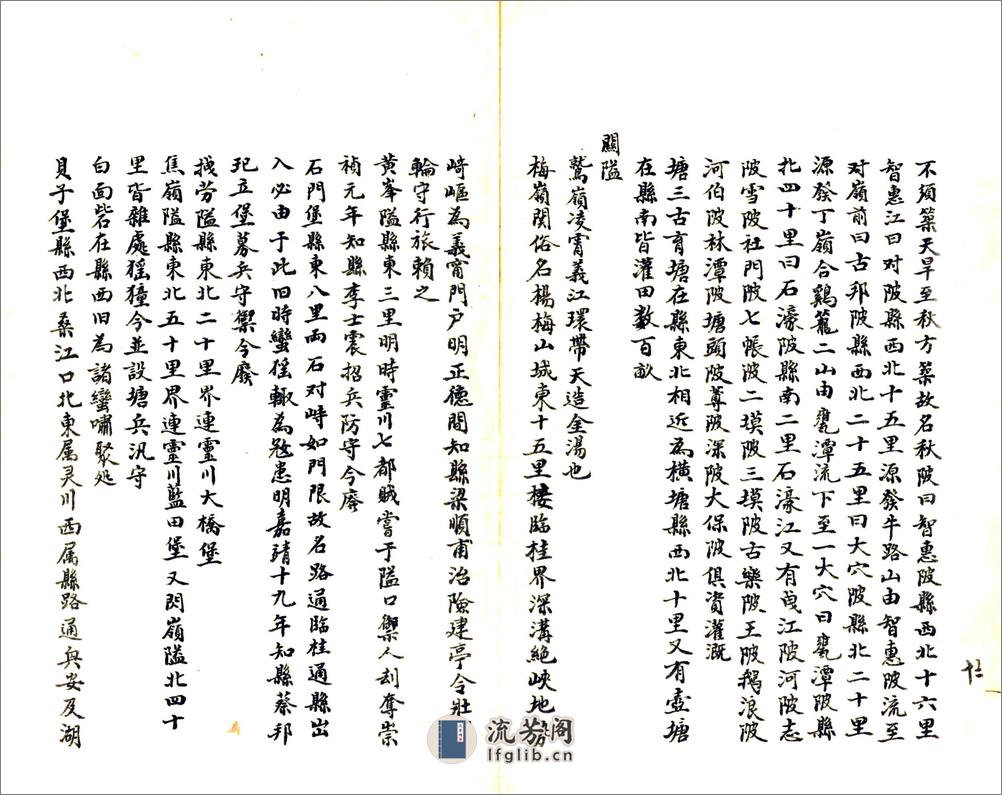 不須築天旱至秋方築故名秋陂曰智惠陂縣西北十六里
智惠江曰对陂縣西北十五里源發牛路山由智惠陂流至
对嶺前曰古邦陂縣西北二十五里曰大穴陂縣北二十里
源發丁嶺合鷄籠二山由甕潭流下至一大穴曰甕潭陂縣
北四十里曰石濠陂縣南二里石濠江又有曵江陂河陂志
陂雪陂社門陂七帳陂二摸陂三摸陂古樂陂王陂鵝浪陂
河伯陂林潭陂塘頭陂蓴陂深陂大保陂俱資灌溉
塘三古育塘在縣東北相近為橫塘縣西北十里又有壺塘
在縣南皆灌田数百畝
關隘
鷲嶺凌霄義江環帶天造金湯也
梅嶺関俗名楊梅山城東十五里接臨桂界深溝絕峽地
﨑嶇為義甯門戶明正德間知縣梁順甫治險建亭令壯
輪守行旅賴之
黄峯隘縣東三里明時靈川七都賊嘗于隘口禦人刦奪崇
禎元年知縣李士震招兵防守今廢
石門堡縣東八里兩石对峙如門限故名路通臨桂通縣出
入必由于此旧時蠻猺輙為冦患明嘉靖十九年知縣蔡邦
玘立堡募兵守禦今廢
挨劳隘縣東北二十里界連靈川大橋堡
焦嶺隘縣東北五十里界連靈川藍田堡又閃嶺隘北四十
里皆雜處猺獞今並設塘兵汛守
白面砦在縣西旧為諸蠻嘯聚処
貝子堡縣西北桑江口北東属灵川西属縣路通兴安及湖
十三
流芳阁
lfglib.cn